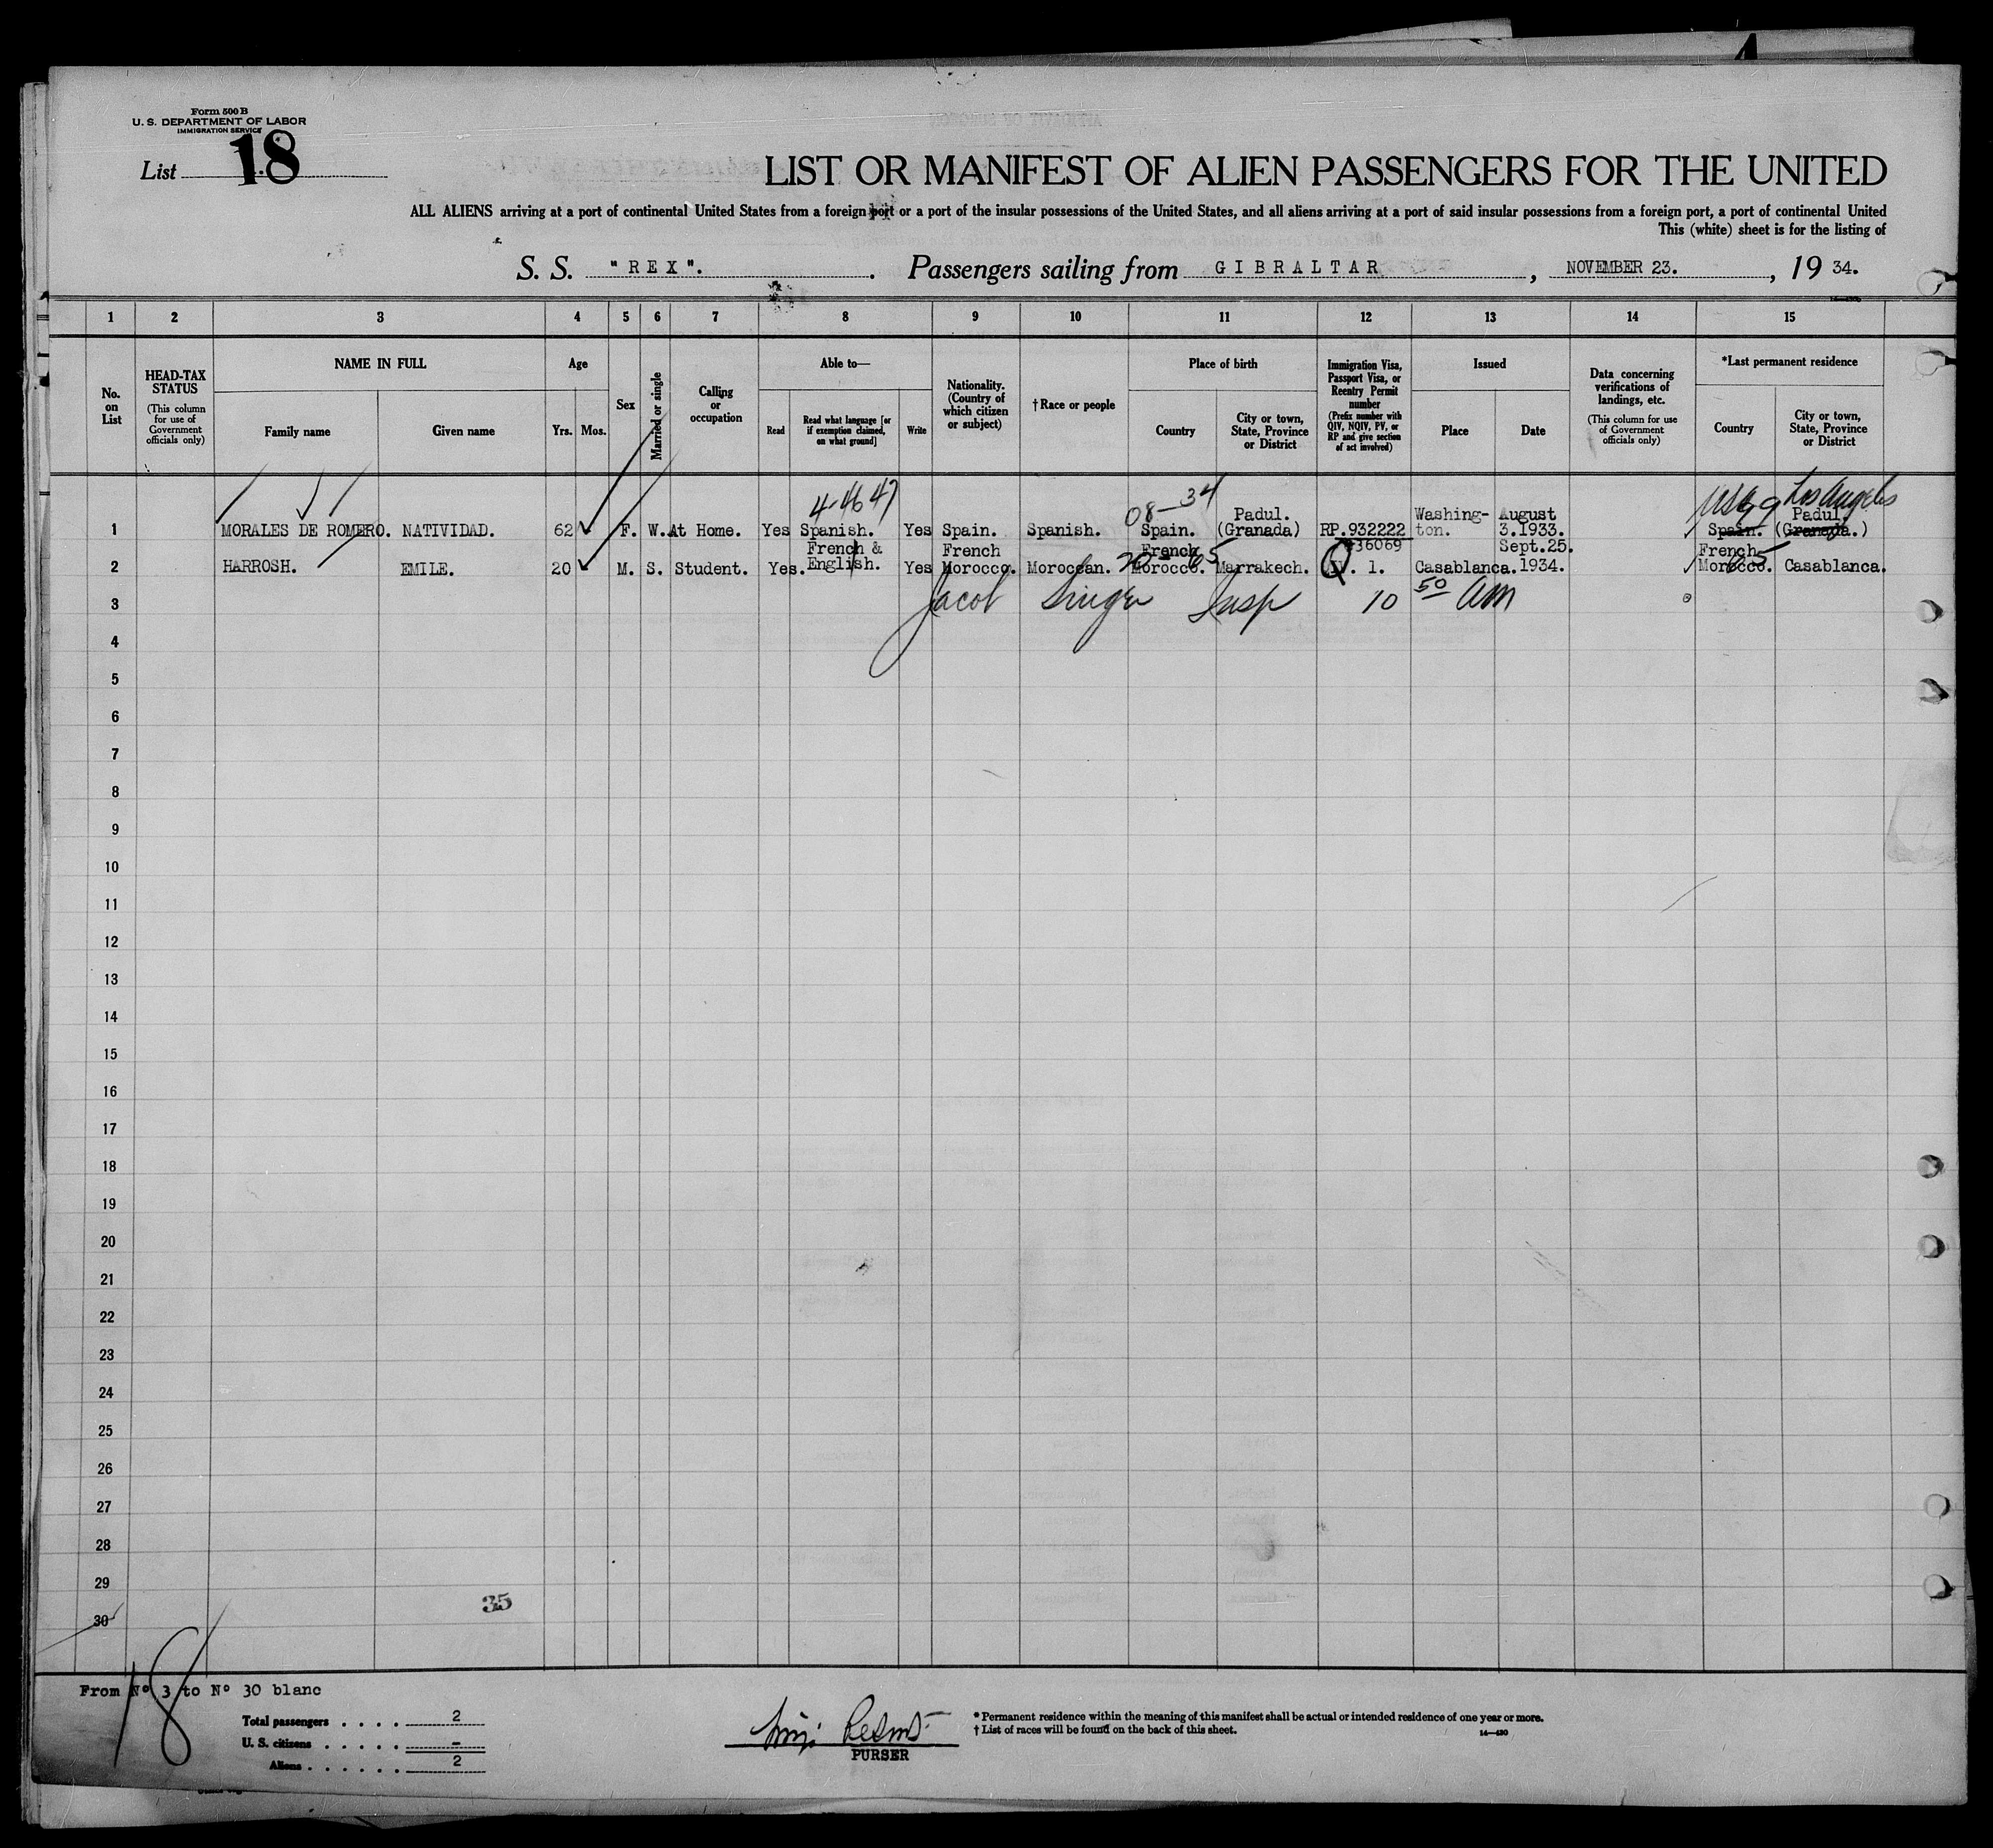 Form 500 B
U. S. DEPARTMENT OF LABOR
IMMIGRATION SERVICE
List 18
LIST OR MANIFEST OF ALIEN PASSENGERS FOR THE UNITED
ALL ALIENS arriving at a port of continental United States from a foreign port or a port of the insular possessions of the United States, and all aliens arriving at a port of said insular possessions from a foreign port, a port of continental United
This (white) sheet is for the listing of
S. S. "REX". Passengers sailing from GIBRALTAR, NOVEMBER 23., 19 34.
1 2 3 4 5 6 7 8 9 10 11 12 13 14 15
No. on List
HEAD-TAX STATUS
(This column for use of Government officials only)
NAME IN FULL
Family name
Given name
Age
Yrs. Mos.
Sex
Married or single
Calling or occupation
Able to—
Read
Read what language [or if exemption claimed, on what ground]
Write
Nationality. (Country of which citizen or subject)
†Race or people
Place of birth
Country
City or town, State, Province or District
Immigration Visa, Passport Visa, or Reentry Permit number
(Prefix number with QIV, NQIV, PV, or RP and give section of act involved)
Issued
Place
Date
Data concerning verifications of landings, etc.
(This column for use of Government officials only)
*Last permanent residence
Country
City or town, State, Province or District
4-4647
08-34
USA 99 Los Angeles
1 MORALES DE ROMERO. NATIVIDAD. 62 F. W. At Home. Yes Spanish. Yes Spain. Spanish. Spain. Padul. (Granada) RP.932222 Washington. August 3.1933. Spain. Padul. (Granada.)
2 HARROSH. EMILE. 20 M. S. Student. Yes. French & English. Yes French Morocco. Moroccan. French Morocco. Marrakech. #36069 QIV. 1. Casablanca. Sept.25. 1934. French Morocco. Casablanca.
20 65
65
3 Jacob Singer Insp 10 50 am
4
5
6
7
8
9
10
11
12
13
14
15
16
17
18
19
20
21
22
23
24
25
26
27
28
29
35
30
18
From Nº 3 to Nº 30 blanc
Total passengers . . . . 2
U. S. citizens . . . . . -
Aliens . . . . . . 2
PURSER
* Permanent residence within the meaning of this manifest shall be actual or intended residence of one year or more.
† List of races will be found on the back of this sheet.
14—430